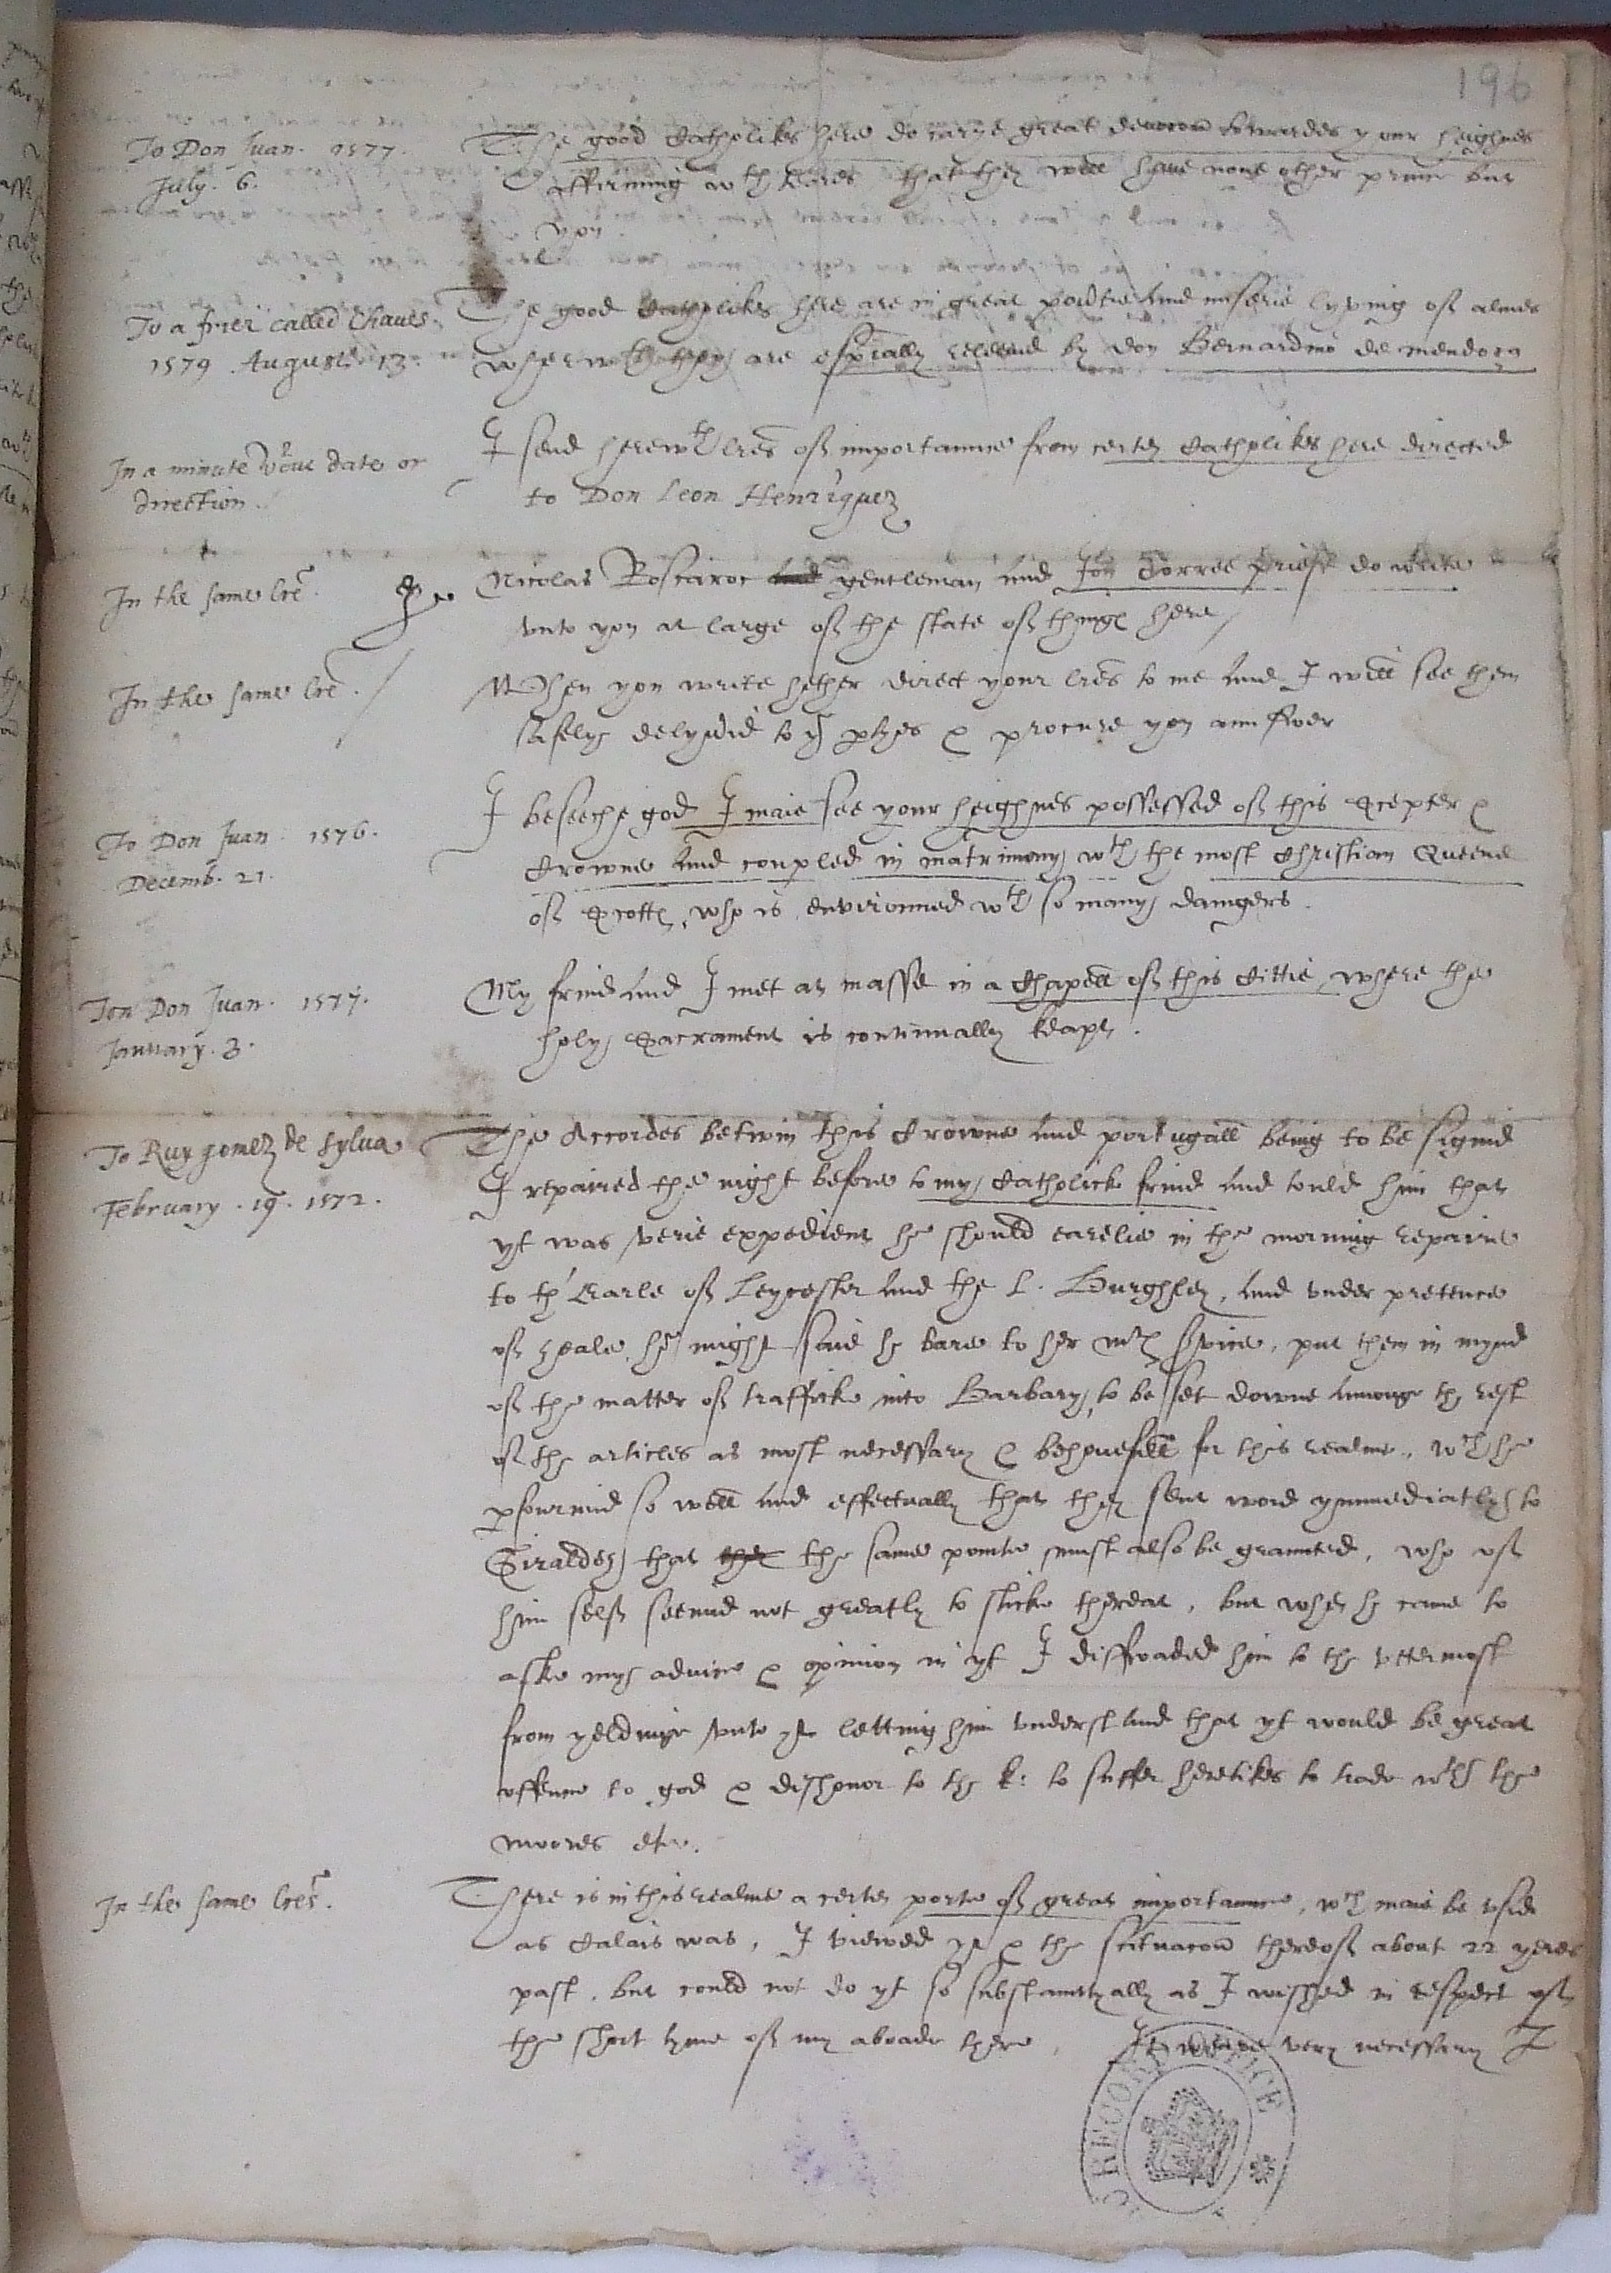 196
To Don Juan. 1577.
July. 6.
The good Catholikes here do carye great deuocon towardes your heighnes
affirming wth teares that they will haue none other prince but
you
To a frier called Chaues.
1579 August. 13.
The good Catholikes here are in great pouertie and miserie lyving of almes
wherwth they are espially releeued by don Bernardino de mendoza
In a minute wthout date or
direction.
I send herewth lres of importaunce from certen Catholikes here directed
to Don Leon Henriquez
In the same lre.
Nicolas Roscaroc and gentleman and Jon Torree priest do write
vnto you at large of the state of things here
In the same lre.
When you write hether direct your lres to me and I will see them
safely delyuered to ye ptyes & procure you aunswer
To Don Juan. 1576.
Decemb. 21.
I beseeche god I maie see your heighnes possessed of this Scepter &
Crowne and coupled in matrimony wth the most Christian Queene
of Scotts, who is environned wth so many daungers.
Ton Don Juan. 1577.
January. 3.
My frind and I met at masse in a Chapell of this Cittie, where the
holy Sacrament is continually keapt.
To Ruy gomez de sylua
February. 19. 1572.
The Accordes betwin this Crowne and portugall being to be signid
I repaired the night before to my Catholick frind and tould him that
yt was verie expedient he should earelie in the morning repaire
to th' Earle of Leycester and the L. Burghley, and vnder pretence
of zeale, he might saie he bare to her mts seruice, put them in mynd
of the matter of trafficke into Barbary, to be set downe amonge the rest
of the articles as most necessary & behouefull for this realme, wch he
pfourmid so well and effectually that they sent word ymmediatly to
Giraldes that they the same pointe must also be graunted, who of
him self seemid not greatly to sticke thereat, but when he came to
aske my aduice & opinion in yt I disswaded him to the vttermost
from yelding vnto yt letting him vnderstand that yt would be great
offence to god & dishonor to the k: to suffer heretikes to trade wth the
moores etc.
In the same lres.
There is in this realme a certen porte of great importaunce, wch maie be vsid
as Calais was, I viewed yt & the scituacon thereof about 22 yeres
past, but could not do yt so substantyally as I wished in respect of
the short tyme of my aboade there. It weare very necessary I
RECORD OFFICE